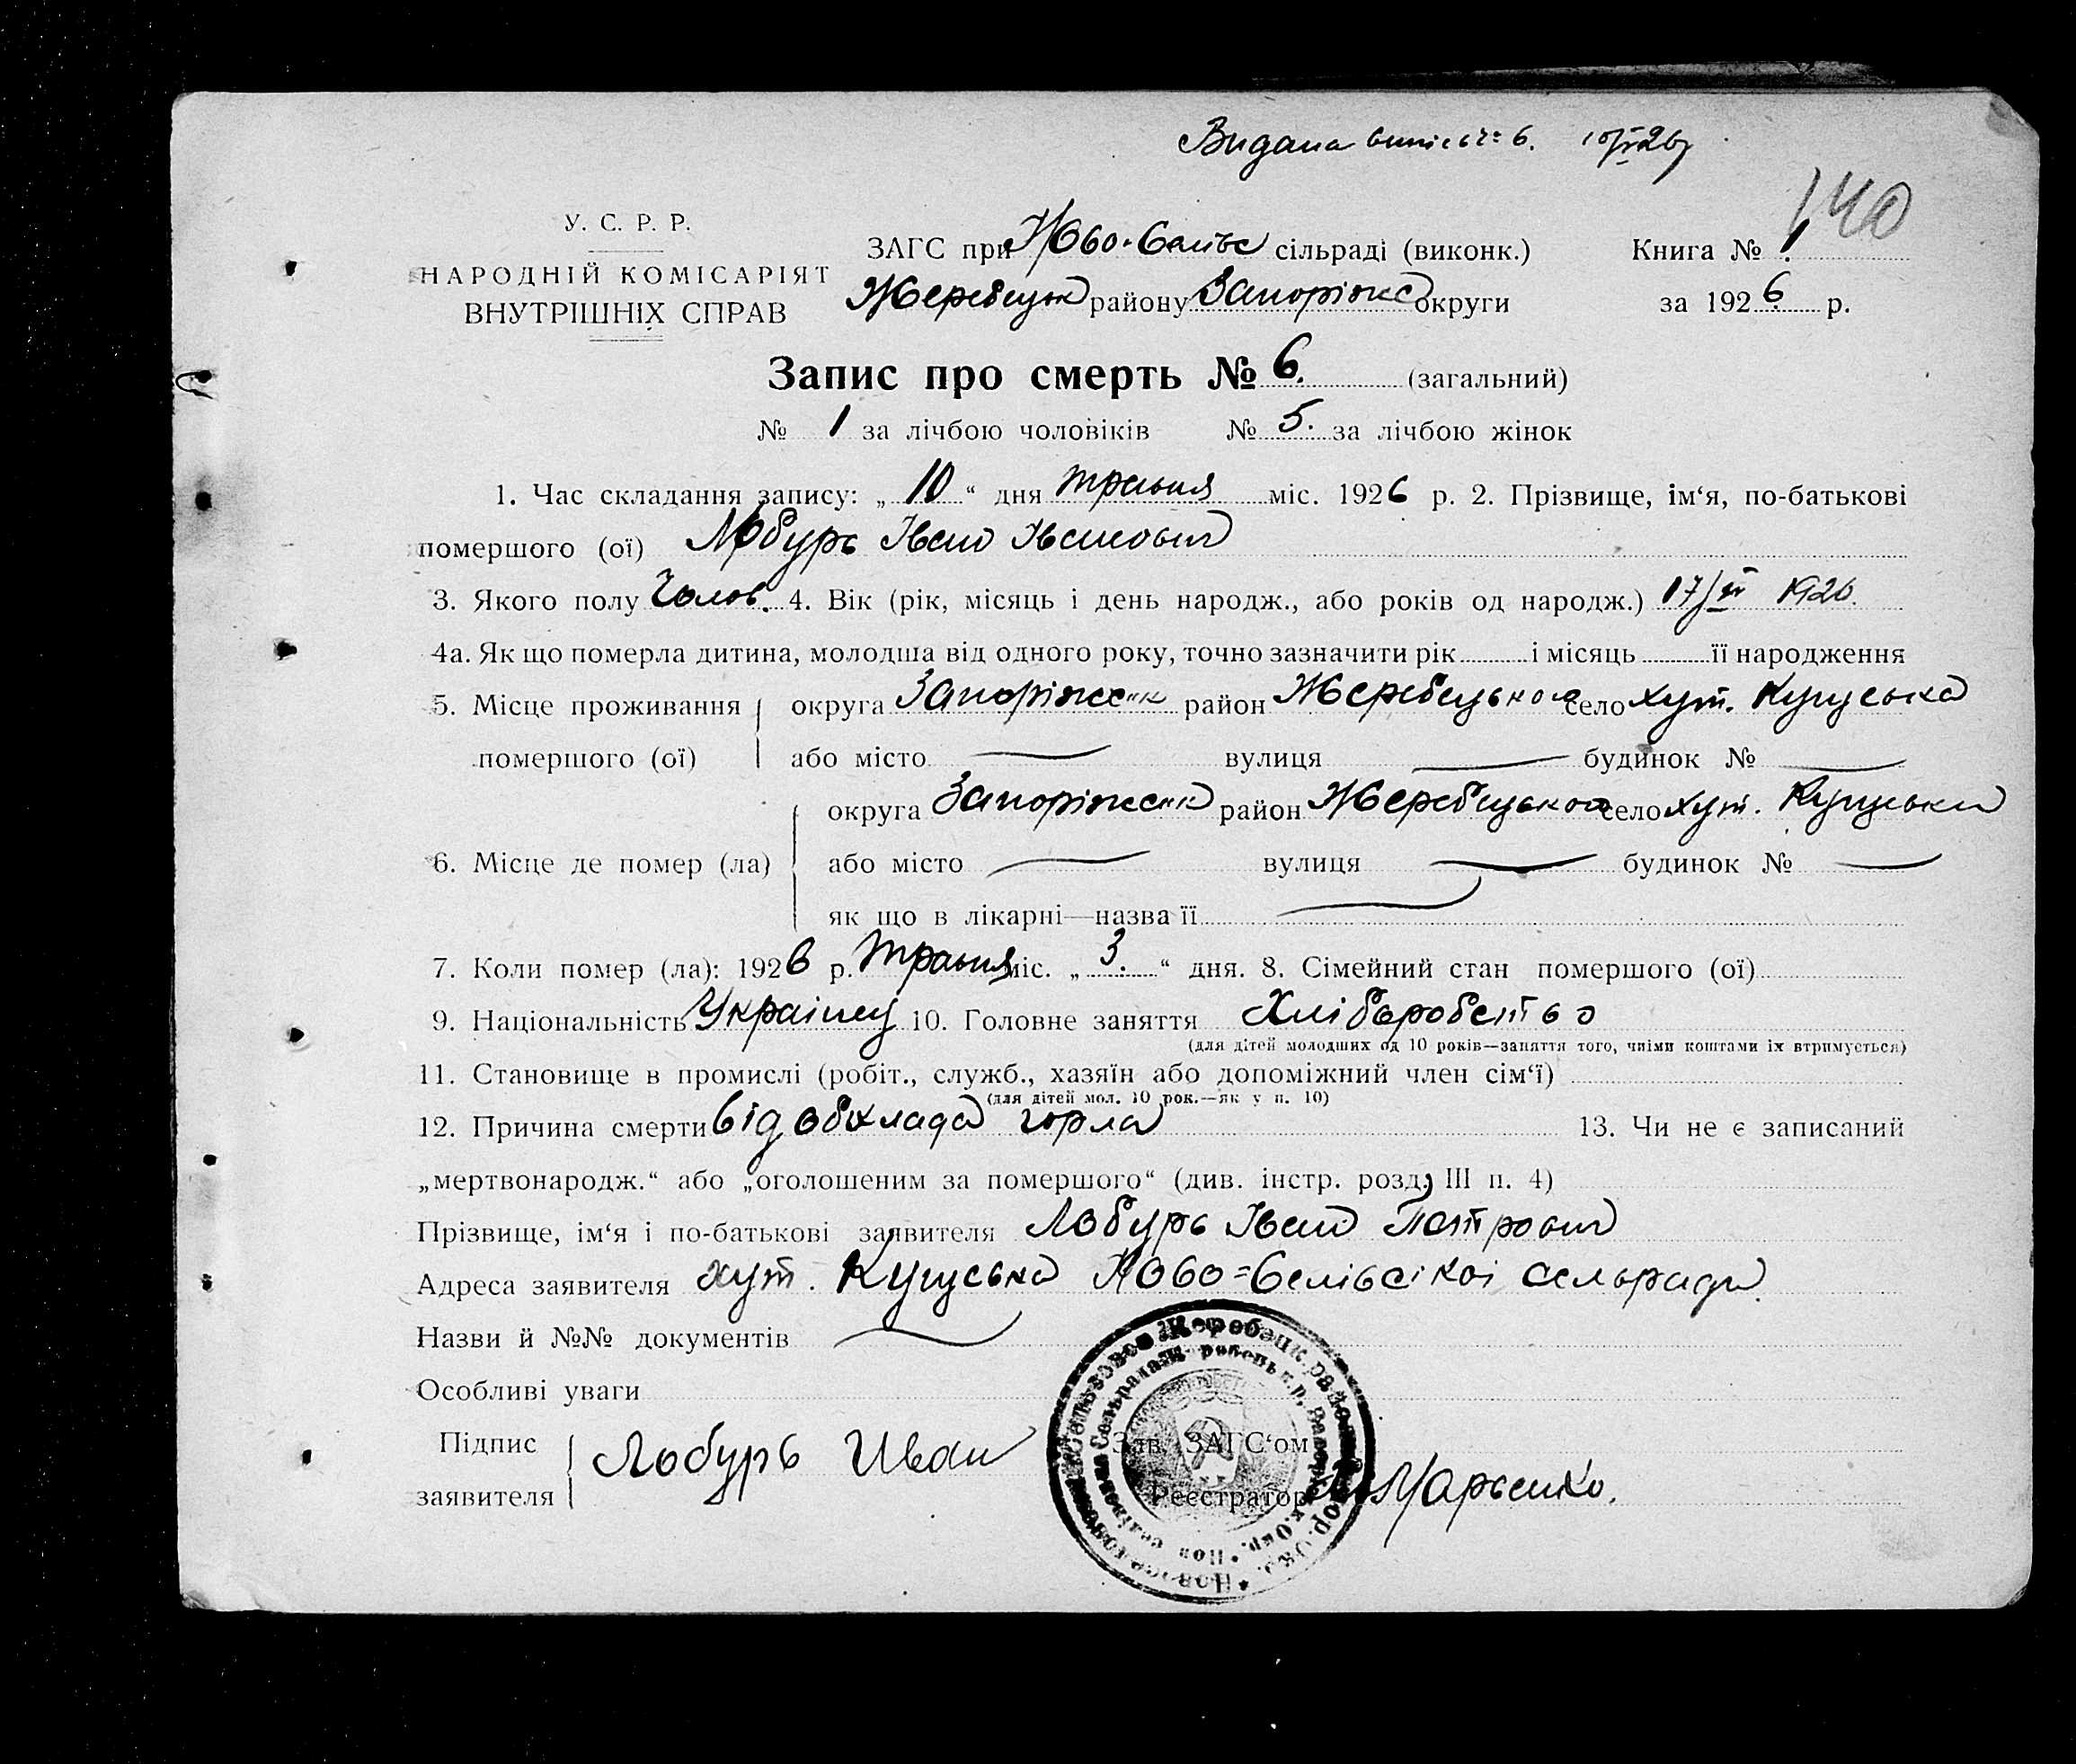 Видана випись № 6. 10/V 26
140
У. С. Р. Р.
НАРОДНІЙ КОМІСАРІЯТ
ВНУТРІШНІХ СПРАВ
ЗАГС при Ново- сільраді (виконк.)
Жеребецьк району Запоріжс округи
Книга № 1
за 1926 р.
Запис про смерть № 6. (загальний)
№ 1 за лічбою чоловіків № 5. за лічбою жінок
1. Час складання запису: „ 10 “ дня травня міс. 1926 р. 2. Прізвище, ім‘я, по-батькові
помершого (ої) Лобурь Іван Іванович
3. Якого полу Чолов. 4. Вік (рік, місяць і день народж., або років од народж.) 17/ 1920.
4а. Як що померла дитина, молодша від одного року, точно зазначити рік і місяць її народження
5. Місце проживання округа Запоріжськ район Жеребецького село хут.
помершого (ої) або місто — вулиця — будинок № —
округа Запоріжськ район Жеребецького село хут.
6. Місце де помер (ла) або місто — вулиця — будинок № —
як що в лікарні—назва її —
7. Коли помер (ла): 1926 р. Травня міс. „ 3. “ дня. 8. Сімейний стан помершого (ої)
9. Національність Украінец 10. Головне заняття Хлібаробство
(для дітей молодших од 10 років—заняття того, чиїми коштами їх втримується)
11. Становище в промислі (робіт., служб., хазяїн або допоміжний член сім‘ї)
(для дітей мол. 10 рок.—як у п. 10)
12. Причина смерти від обклада горла 13. Чи не є записаний
„мертвонародж.“ або „оголошеним за помершого“ (див. інстр. розд. III п. 4)
Прізвище, ім‘я і по-батькові заявителя Лобурь Іван Петрович
Адреса заявителя хут. Ново= сельради
Назви й №№ документів —
Особливі уваги
Підпис
заявителя Лобурь Иван
Зав. ЗАГС‘ом
Реєстратор Марченко.